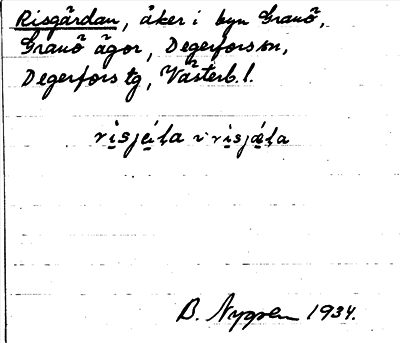 Risgärdan, åker i byn Granö,
Granö ägor, Degerfors sn,
Degerfors tg, Västerb. l.
B. Nygren 1934.